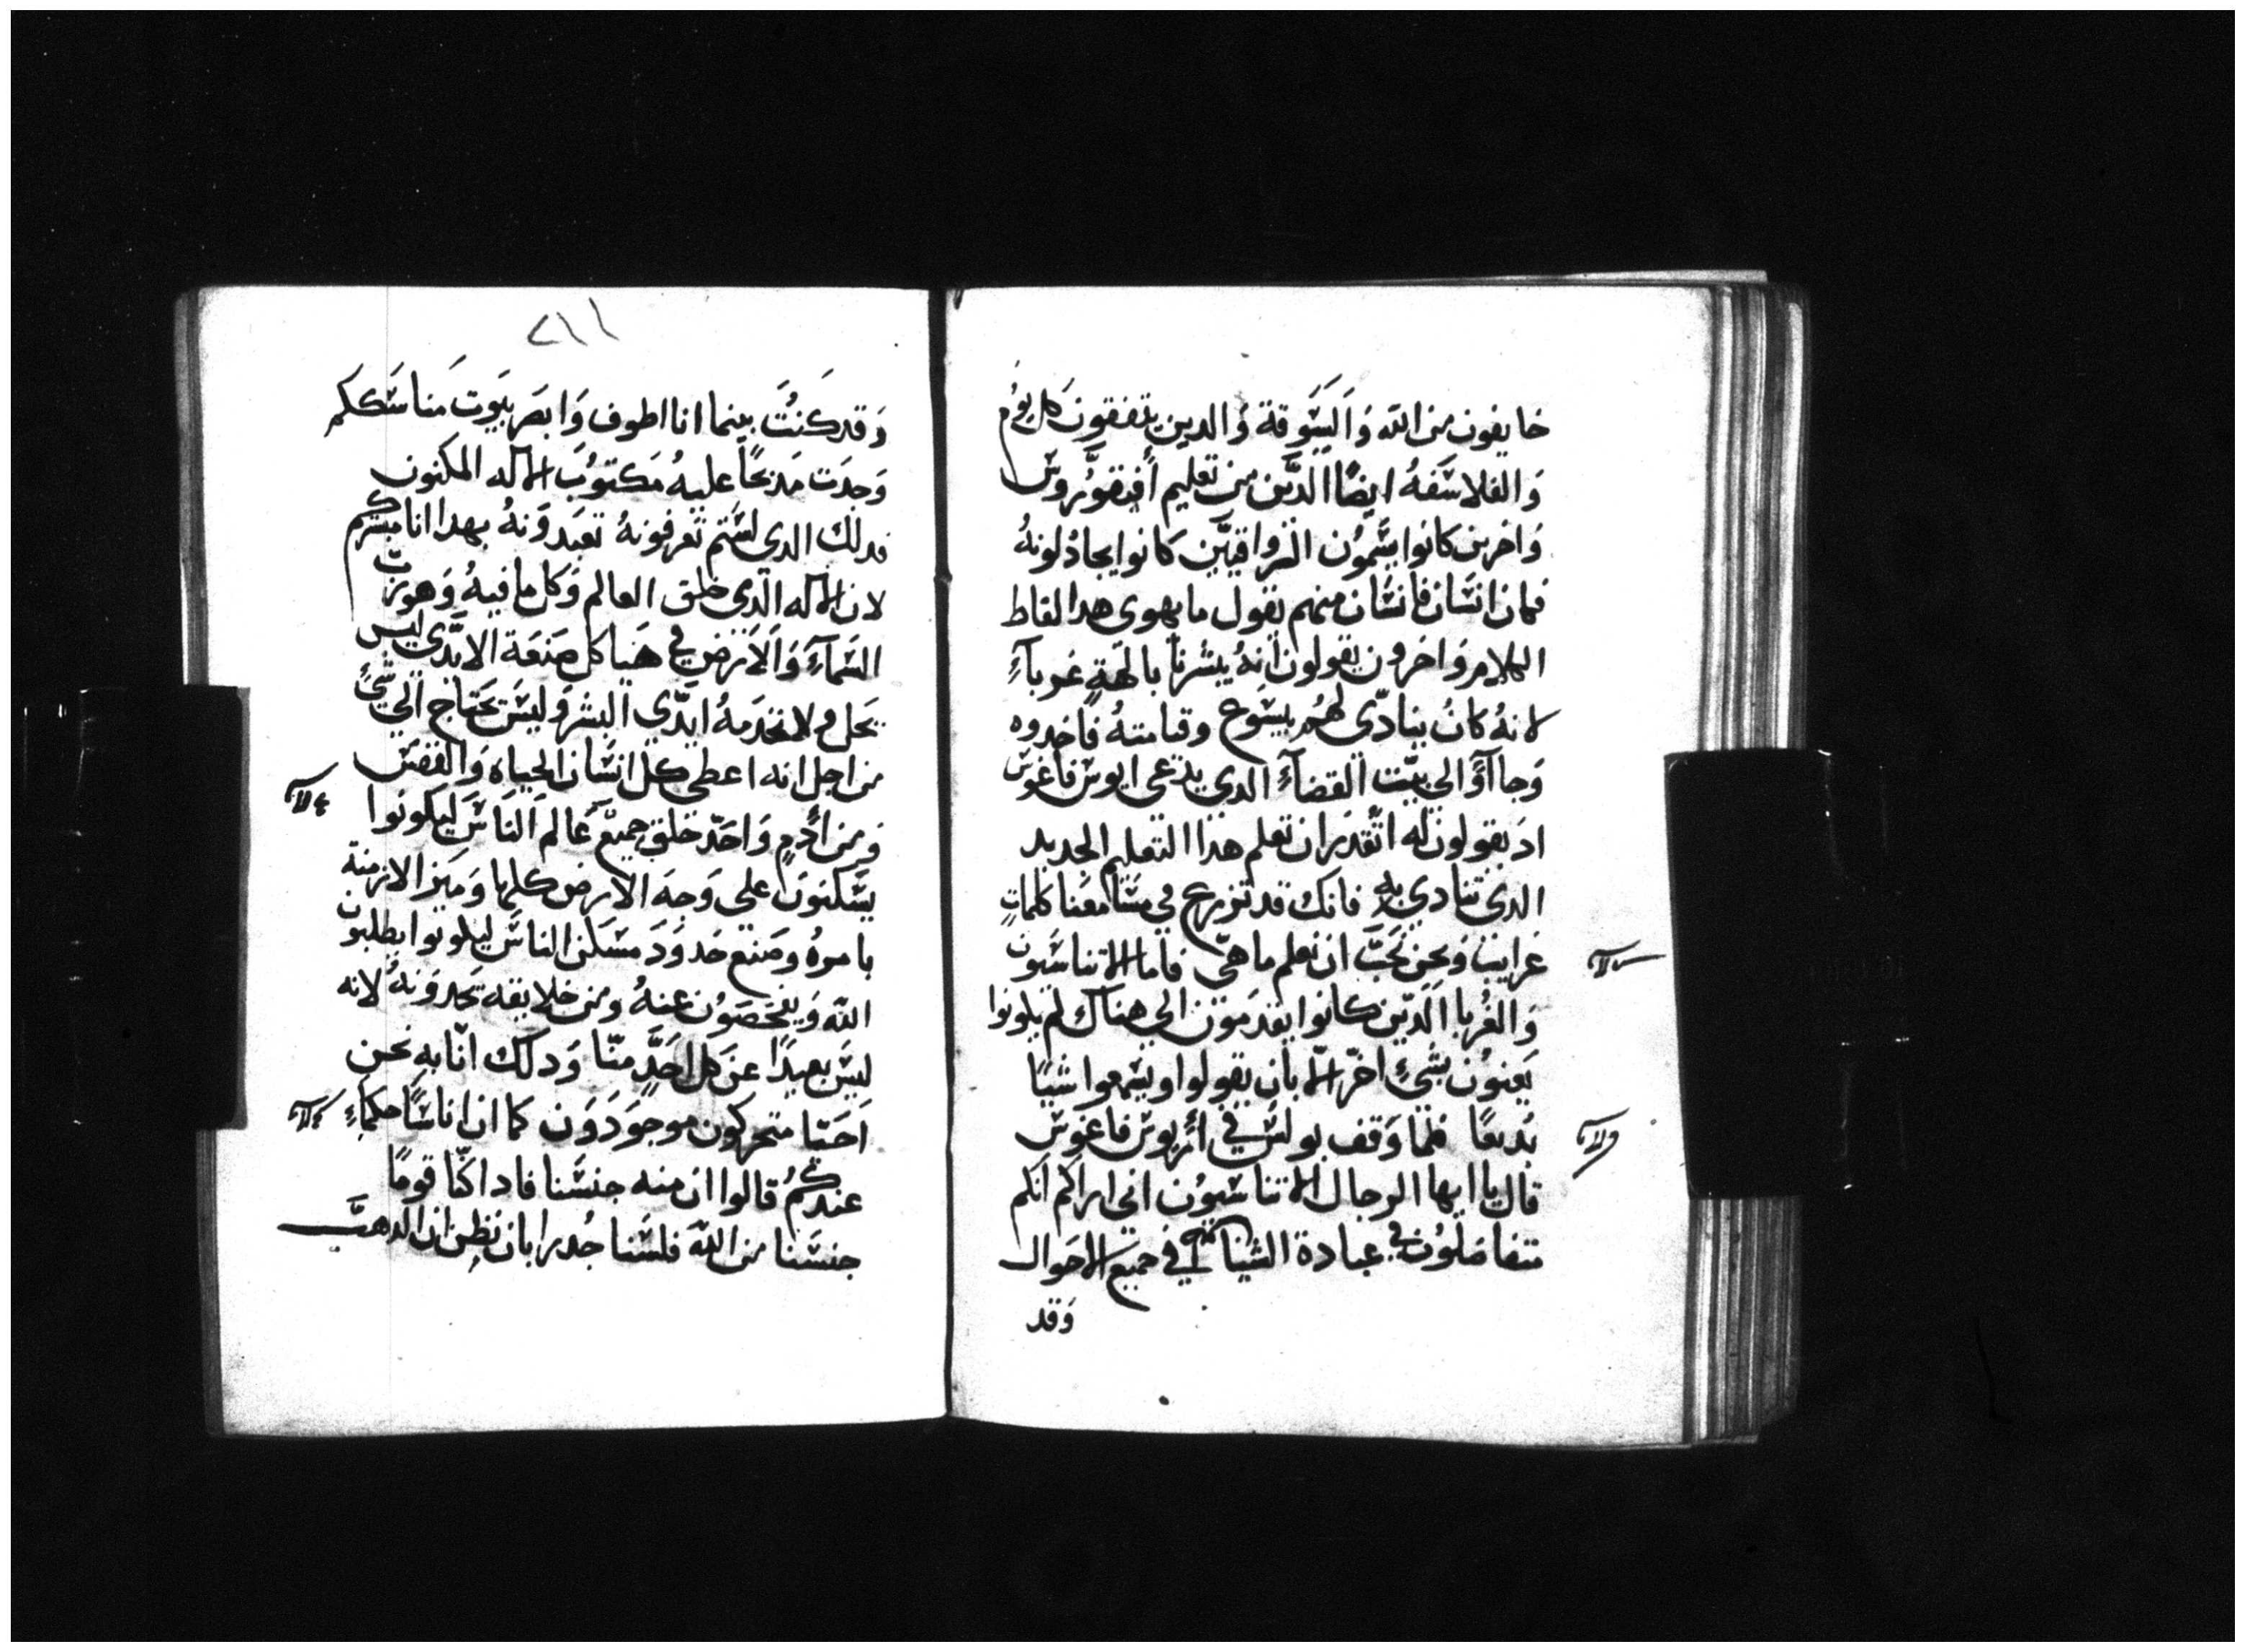 خايفون من الله وَالسَوقة وَالدين يتفقون كل يوم
وَالفلاسَفهُ ايضًا الدَّين من تعليم أفيقوُروسَ
وَاخرين كانوا يسَموُن الرواقيَّين كانوا يجادُلونهُ
فمان انسَان فانسَان منهم يقول ما يهوى هدا لقاط
الكلام وَاخرون يقولون انهُ يبشرنا بالهَةٍ غوباءٍ
لانهُ كانُ ينادّى لهُم بيسَوح وقيامتهُ فاخدوه
وَجاآوَا الي بيّت القضآءِ الدي يدعى اريوسَ فاغوسَ
ادَ يقولون له اتقدَر ان تعلم هدا التعليم الجديد
الدى تنادي به فانك قد تزرع في مسَامعَنا كلماتٍ
غرايبَ وَنحن نحَبَّ ان نعلم ما هىَّ فاما الاتناسَيون
وَالغُربا الَدّين كانوا يقدَموَن الي هناك لم يكونوا
يَعنوُن بشَئٍ اخرّ الاّ بان يقولوا ويسَمعوا شيًا
بُديعًا فلما وَقف بولسَ في أريوسَ فاغوسَ
قال يا ايها الرجال الاتناسَيوُن اني اراكم انكم
متفاضلوُن في عبادة الشياطين في جميع الاحَوال
وَقد
٢١١
وَقد كَنُتَ بينما انا اطوف وَابصَر بيَوت مَناسَككم
وَجدَت مَدبحًا عليهُ مَكتوُبَ الاله المكنون
فدلك الدي لسَتم تعرفونهُ تعَبدوَنهُ بهدا انا مبشركم
لان الاله الدّى خلق العالم وَكل ما فيهُ وَهو رَبّ
السَمآءَ وَالاَرَض في هَياكل صَنعَة الايدَّي ليس
يَحل وَلا تخدَمهُ ايدّي البشر وَليسَ يحَتاج الي شئٍ
من اجل انه اعطى كل انسَان الحياه وَالنفسَ
وَمن أدمٍ وَاحَدّ خلق جميعَ عَالم الناسَ ليكونوا
يسَكنوَن على وَجهَ الارض كلها وَميَز الازمنة
بامرهُ وصَنع حَدوَدَ مسَكن الناسَ ليكونوا يطلبون
اللهَ وَيفحَصَوُن عنهُ ومن خلايقه يَجدوَنهُ لانه
ليسَ بعيدًا عن كل احَدٍّ منّا وَدلك انّا به نحَن
اَحَيا متحركون موجوَدَوَن كما ان اناسًا حكماءٍ
عندكمُ قالوا ان منه جنسَنا فادا كنّا قومًا
جنسَنا من اللهَ فلسَنا جُدرا بان نظِن ان الدهبَّ